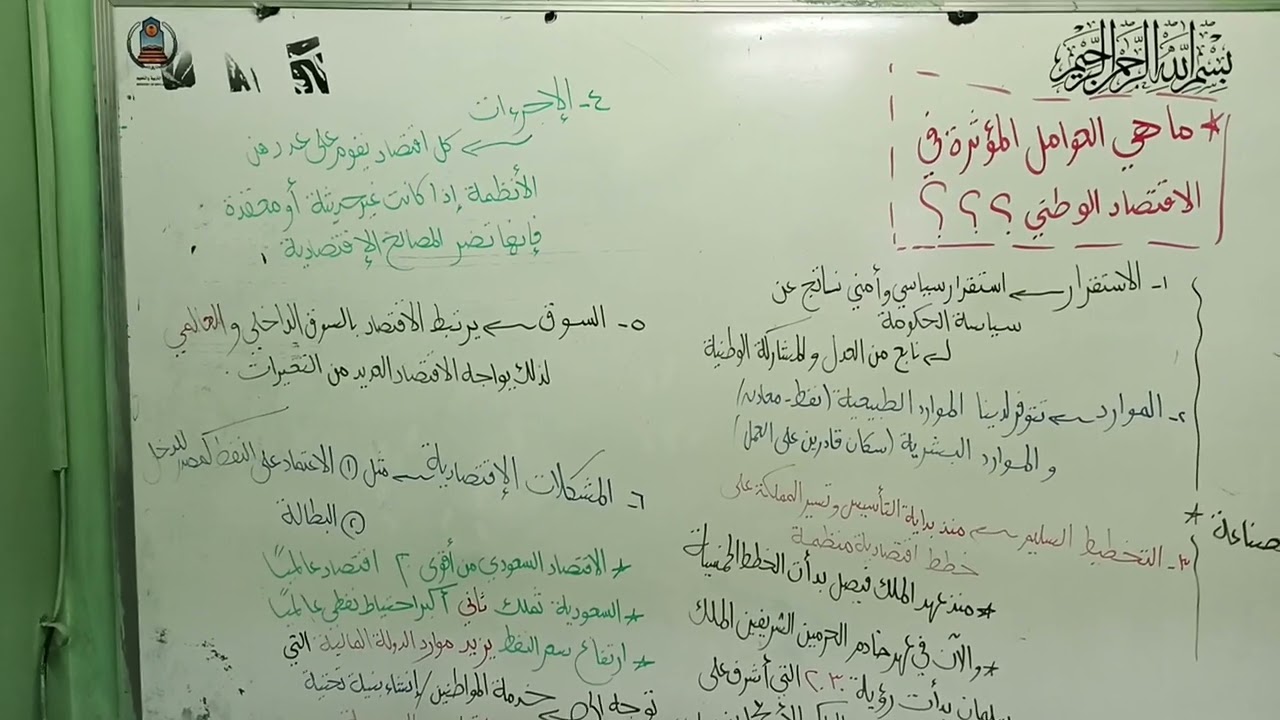 بسم الله الرحمن الرحيم
* ما هي العوامل المؤثرة في
الاقتصاد الوطني ؟ ؟ ؟
١- الاستقرار ← استقرار سياسي وأمني ناتج عن
سياسة الحكومة
نابع من العدل والمشاركة الوطنية
٢- الموارد ← تتوفر لدينا الموارد الطبيعية (نفط - معادن)
والموارد البشرية (سكان قادرين على العمل)
٣- التخطيط السليم ← منذ بداية التأسيس وتسير المملكة على
خطط اقتصادية منظمة
* منذ عهد الملك فيصل بدأت الخطط الخمسية
* والآن في عهد خادم الحرمين الشريفين الملك
سلمان بدأت رؤية ٢٠٣٠ التي أشرف على
* صناعة
٤- الإجرءات
← كل اقتصاد يقوم على عدد من
الأنظمة إذا كانت غير حديثة أو معقدة
فإنها تضر المصالح الإقتصادية
٥- السوق ← يرتبط الاقتصاد بالسوق الداخلي والعالمي
لذلك يواجه الاقتصاد العديد من التغيرات .
٦- المشكلات الإقتصادية ← مثل ① الاعتماد على النفط كمصدر للدخل
② البطالة
* الاقتصاد السعودي من أقوى ٢٠ اقتصاد عالميًا
* السعودية تملك ثاني أكبر احتياط نفطي عالميًا
* ارتفاع سعر النفط يزيد موارد الدولة المالية التي
توجه إلى ← خدمة المواطنين / إنشاء بنية تحتية